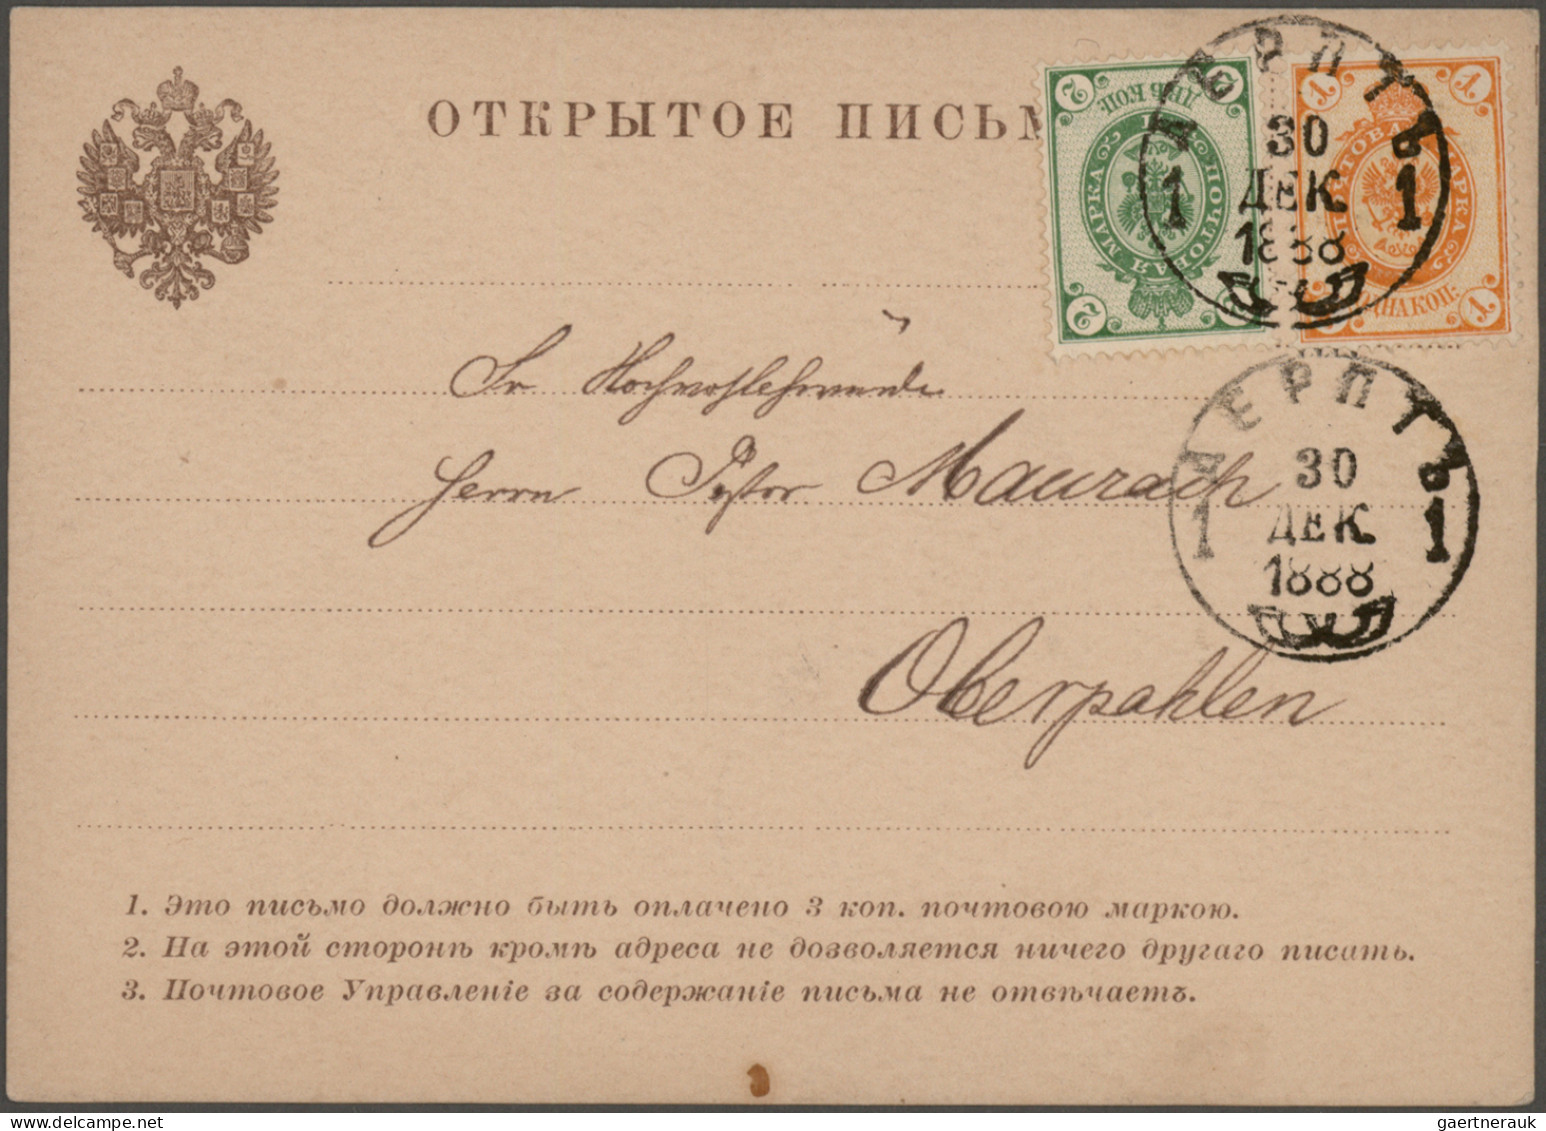 ОТКРЫТОЕ ПИСЬМ
2 2
ДВѢ КОП:
ПОЧТОВАЯ МАРКА
2
1 1
ПОЧТОВАЯ МАРКА
ОДНА КОП:
1
ДЕРПТЪ
30
1 ДЕК. 1
1888
Sr Hochwohlehrwürden
Herrn Pastor Maurach
ДЕРПТЪ
30
1 ДЕК. 1
1888
Oberpahlen
1. Это письмо должно быть оплачено 3 коп. почтовою маркою.
2. На этой сторонѣ кромѣ адреса не дозволяется ничего другаго писать.
3. Почтовое Управленіе за содержаніе письма не отвѣчаетъ.
gaertnerauk